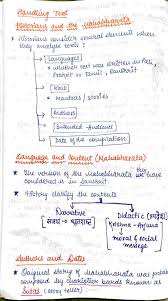 Handling Text
Historians and the Mahabharata
Historians consider several elements when
they analyse texts:
Languages
whether text was written in Pali,
Prakrit or Tamil, Sanskrit
Kind
Mantras / stories
Authors
Intended Audience
Date of the compilation
Language and Content (Mahabharata)
The version of the Mahabharata we have
considered is in Sanskrit.
History classify the contents
Narrative
Didactic
Krishna - Arjuna
moral & social
message
Authors and Dates
Original story of Mahabharata was prob
composed by charioteer bards known as
Sutas (story teller)